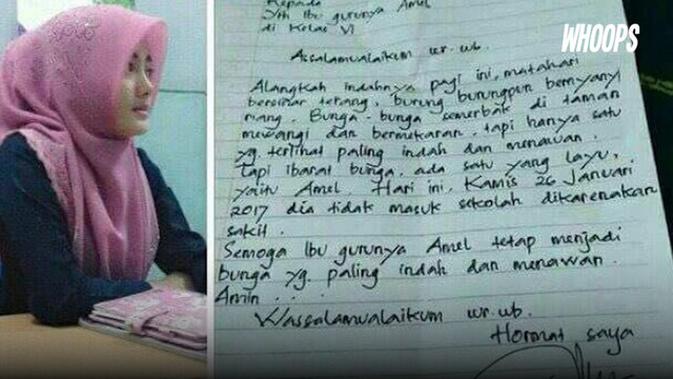 WHOOPS
Kepada
Yth Ibu gurunya Amel
di Kelas VI
Assalamualaikum wr. wb.
Alangkah indahnya pagi ini, matahari
bersinar terang, burung burungpun bernyanyi
riang. Bunga-bunga semerbak di taman
mewangi dan bermekaran. tapi hanya satu
yg. terlihat paling indah dan menawan.
Tapi ibarat bunga, ada satu yang layu,
yaitu Amel. Hari ini, Kamis 26 Januari
2017 dia tidak masuk sekolah dikarenakan
sakit.
Semoga Ibu gurunya Amel tetap menjadi
bunga yg. paling indah dan menawan.
Amin...
Wassalamualaikum wr. wb.
Hormat saya